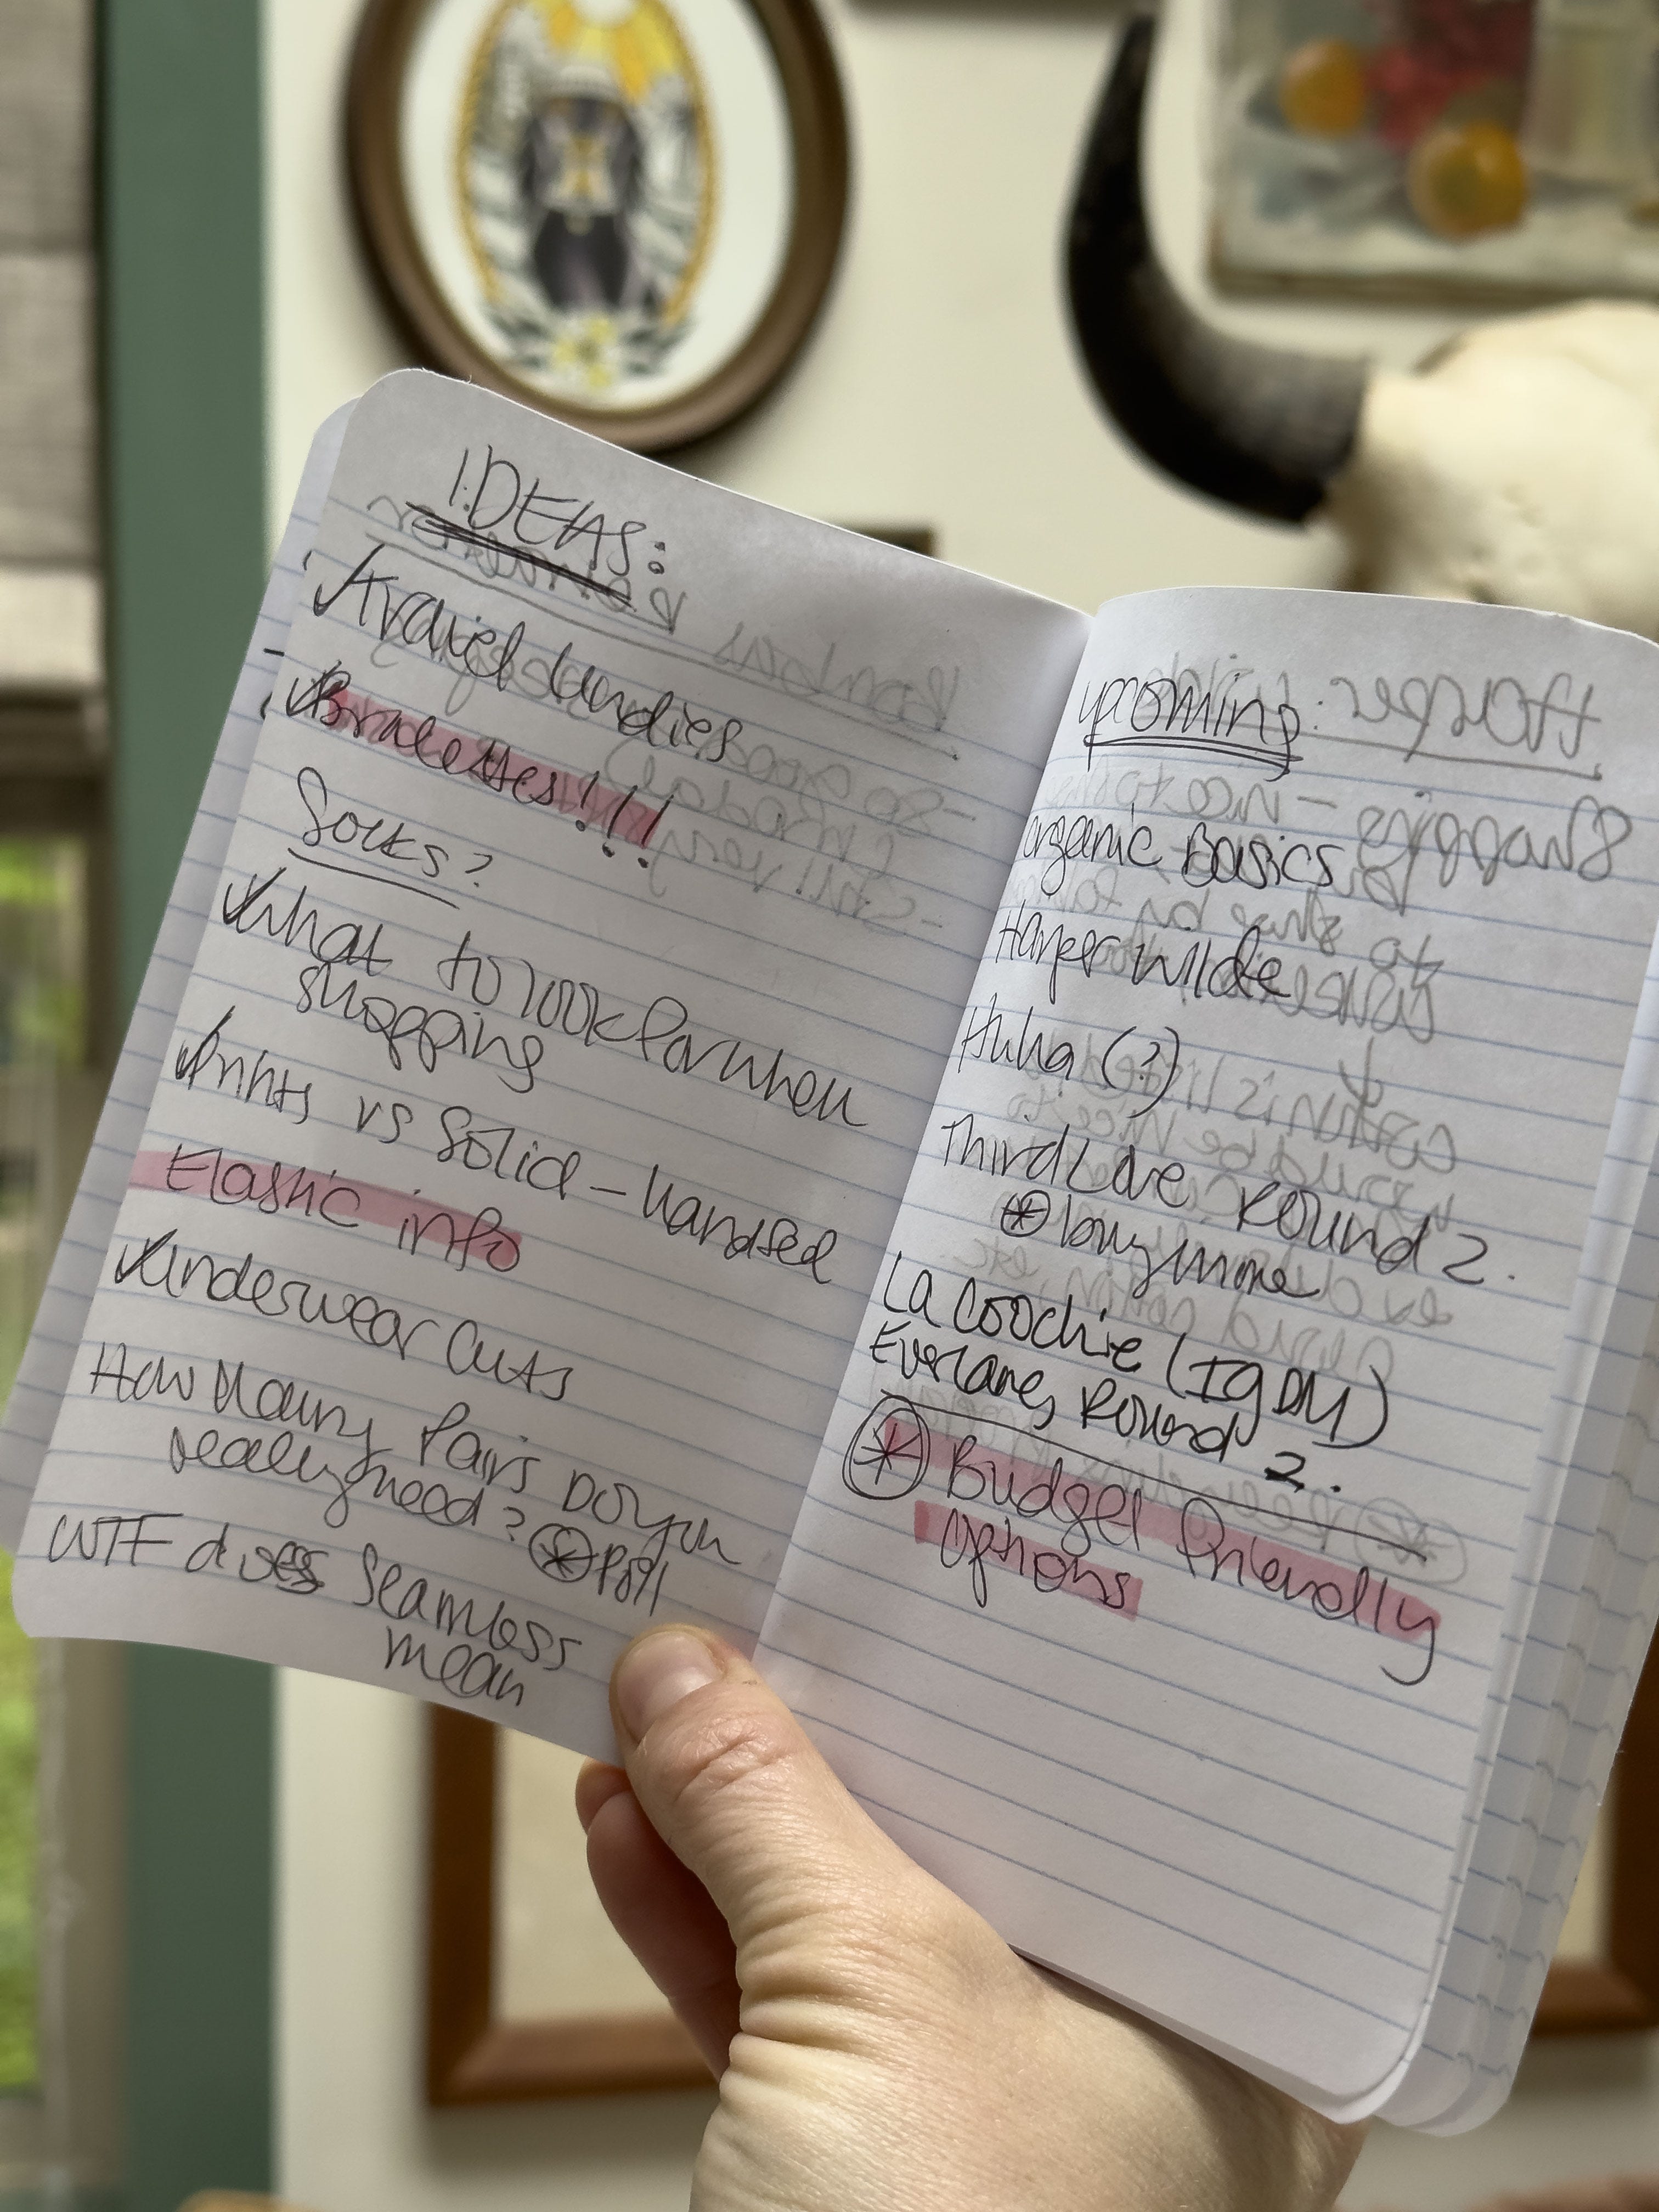 IDEAS:
✓travel undies
✓Bralettes!!!
Socks?
✓What to look for when
shopping
✓Prints vs Solid -
Elastic info
✓Underwear Cuts
How Many Pairs Do you
really need? ⊛ Poll
WTF does Seamless
mean
upcoming:
organic Basics
Harper Wilde
Huha (?)
Third Love Round 2.
⊛ buy more
La Coochie (IG DM)
Everlane, Round 2.
⊛ Budget friendly
options